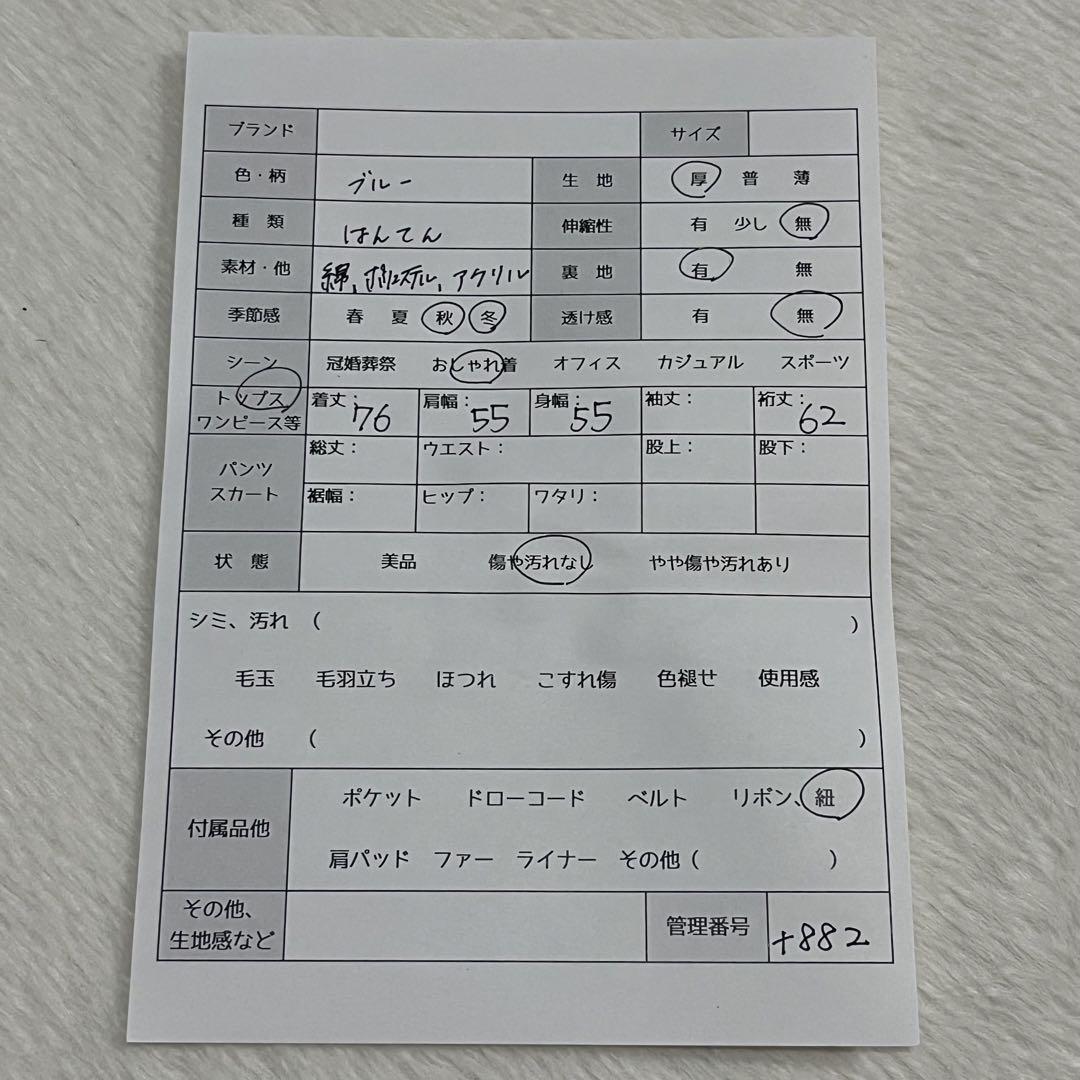 ブランド サイズ
色・柄 ブルー 生 地 厚 普 薄
種 類 はんてん 伸縮性 有 少し 無
素材・他 綿、ポリエステル、アクリル 裏 地 有 無
季節感 春 夏 秋 冬 透け感 有 無
シーン 冠婚葬祭 おしゃれ着 オフィス カジュアル スポーツ
トップス 着丈: 76 肩幅: 55 身幅: 55 袖丈: 裄丈: 62
ワンピース等
パンツ 総丈: ウエスト: 股上: 股下:
スカート 裾幅: ヒップ: ワタリ:
状 態 美品 傷や汚れなし やや傷や汚れあり
シミ、汚れ ( )
毛玉 毛羽立ち ほつれ こすれ傷 色褪せ 使用感
その他 ( )
付属品他 ポケット ドローコード ベルト リボン、紐
肩パッド ファー ライナー その他 ( )
その他、
生地感など 管理番号 +882